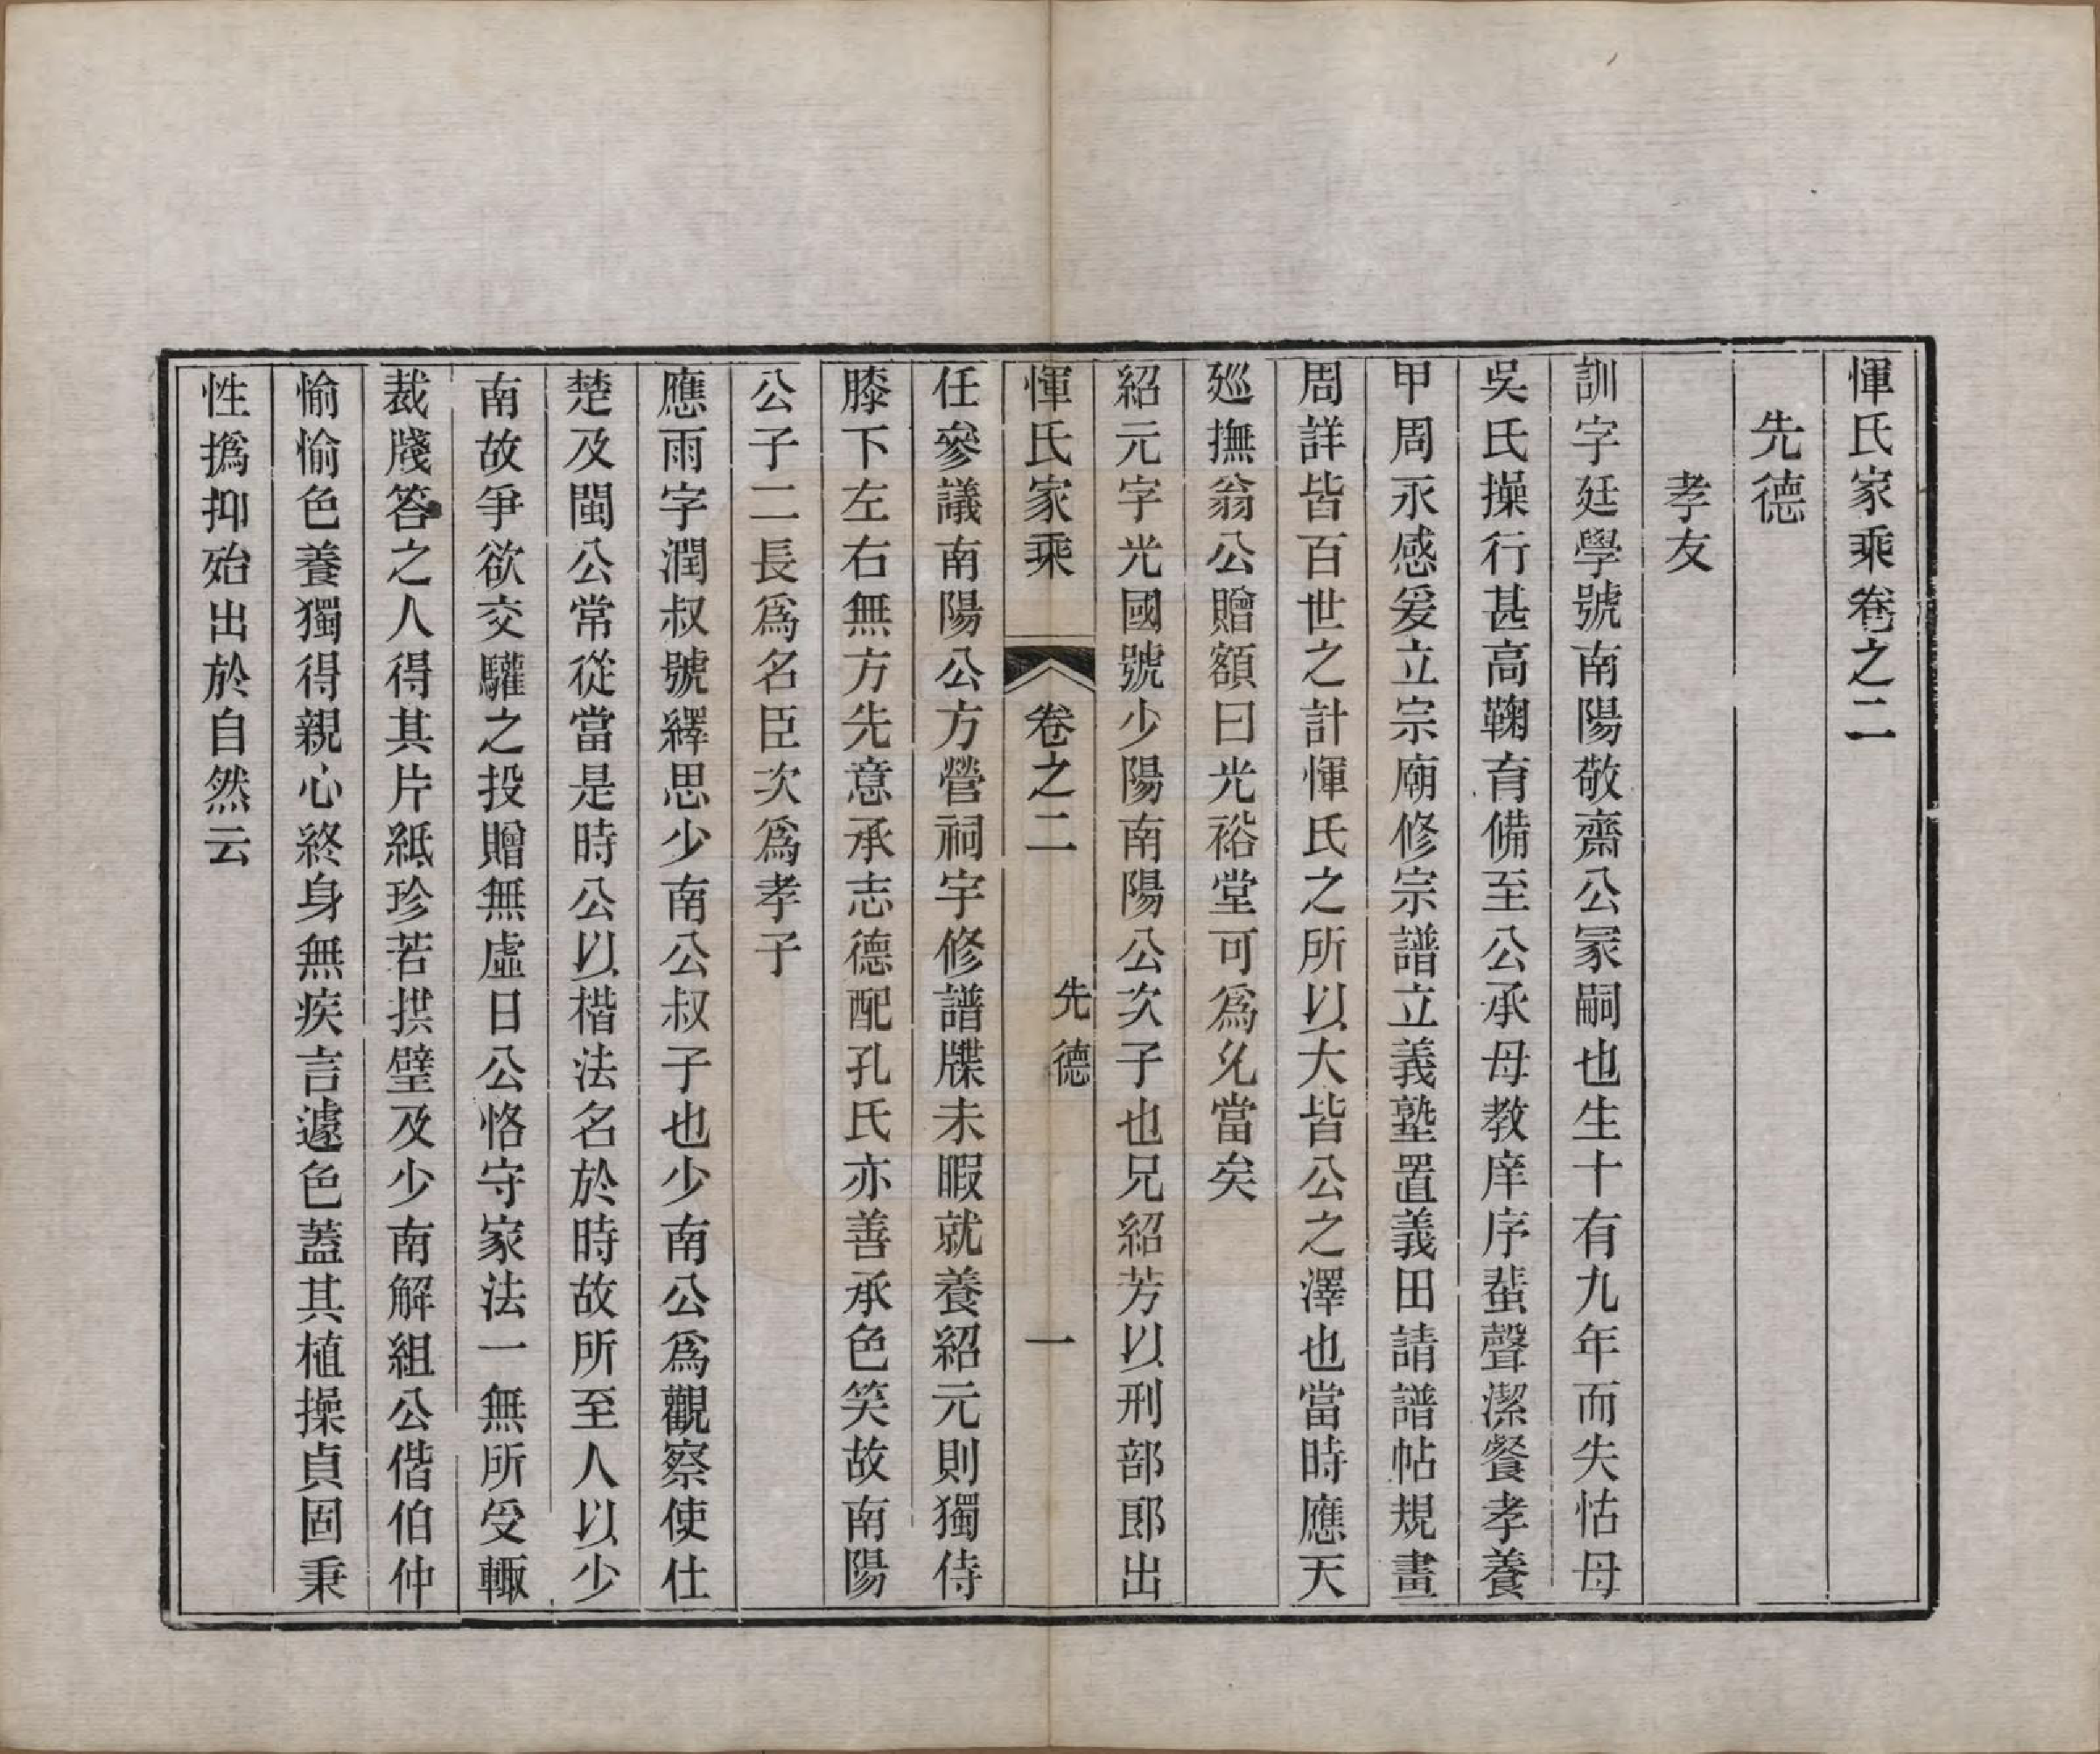 惲氏家乘卷之二
先德
孝友
訓字廷學號南陽敬齋公冢嗣也生十有九年而失怙母
吳氏操行甚高鞠育備至公承母教庠序蜚聲潔餐孝養
甲周永感爰立宗廟修宗譜立義塾置義田請譜帖規畫
周詳皆百世之計惲氏之所以大皆公之澤也當時應天
廵撫翁公贈額曰光裕堂可爲允當矣
紹元字光國號少陽南陽公次子也兄紹芳以刑部郎出
惲氏家乘 卷之二 先德 一
任參議南陽公方營祠宇修譜牒未暇就養紹元則獨侍
膝下左右無方先意承志德配孔氏亦善承色笑故南陽
公子二長爲名臣次爲孝子
應雨字潤叔號繹思少南公叔子也少南公爲觀察使仕
楚及閩公常從當是時公以楷法名於時故所至人以少
南故爭欲交驩之投贈無虛日公恪守家法一無所受輙
裁牋答之人得其片紙珍若拱璧及少南解組公偕伯仲
愉愉色養獨得親心終身無疾言遽色蓋其植操貞固秉
性撝抑殆出於自然云